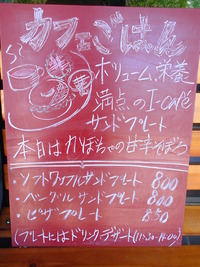 カフェごはん
ボリューム、栄養
満点のI-cafe
サンドプレート
本日はかぼちゃの甘辛そぼろ
・ソフトワッフルサンドプレート 800
・ベーグルサンドプレート 800
・ピザプレート 850
(プレートにはドリンク、デザート(11:30~14:00)